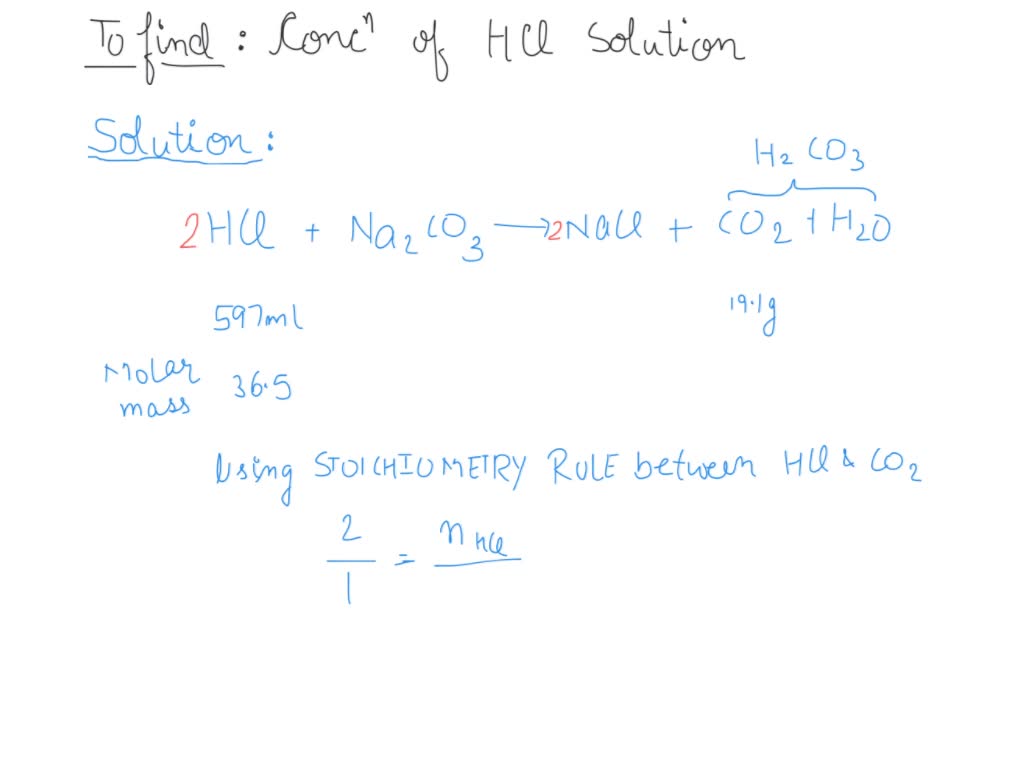 To find : Concⁿ of HCl Solution
Solution :
H₂CO₃
2HCl + Na₂CO₃ → 2NaCl + CO₂ + H₂O
597ml 19.1g
Molar mass 36.5
Using STOICHIOMETRY RULE between HCl & CO₂
2/1 = nHCl